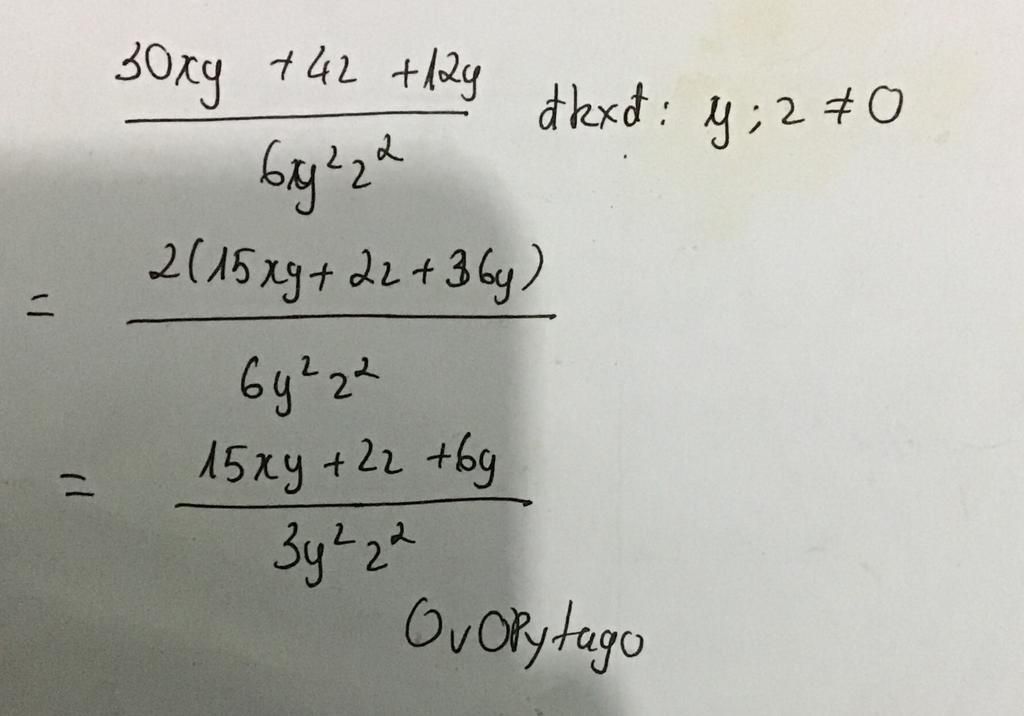 30xy + 4z + 12y
6xy²z²
đkxđ: y; z ≠ 0
= 2(15xy + 2z + 36y)
6y²z²
= 15xy + 2z + 6y
3y²z²
OvOPytago